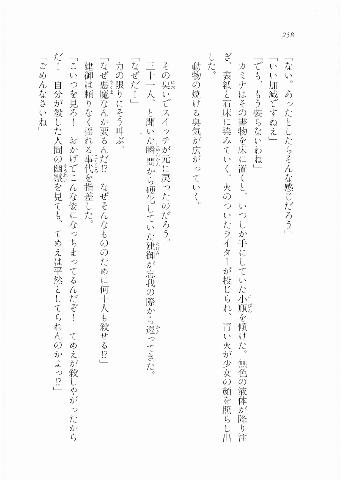 258
「ない。あったとしたらそんな感じだろう」
「いい加減ですねえ」
「でも、もう要らないわね」
　カミナはその書物を床に置くと、いつしか手にしていた小瓶を傾けた。無色の液体が降り注
ぎ、表紙と石床に染みていく。火のついたライターが投じられ、青い火が少女の顔を照らし出
した。
　動物の焼ける臭気が広がっていく。
　その臭いでスイッチが元に戻ったのだろう。
　三十一人、と聞いた瞬間から硬化していた建御が忘我の際から還ってきた。
「なぜだ！」
　力の限りにそう叫ぶ。
「なぜ悪魔なんか要るんだ!?　なぜそんなもののために何十人も殺せる!?」
　建御は頼りなく揺れる事代を指差した。
「こいつを見ろ！　おかげでこんな姿になっちまってるんだぞ！　てめえが殺しやがったから
だ！　自分が殺した人間の幽霊を見ても、てめえは平然としてられんのかよっ!?」
「ごめんなさいね」